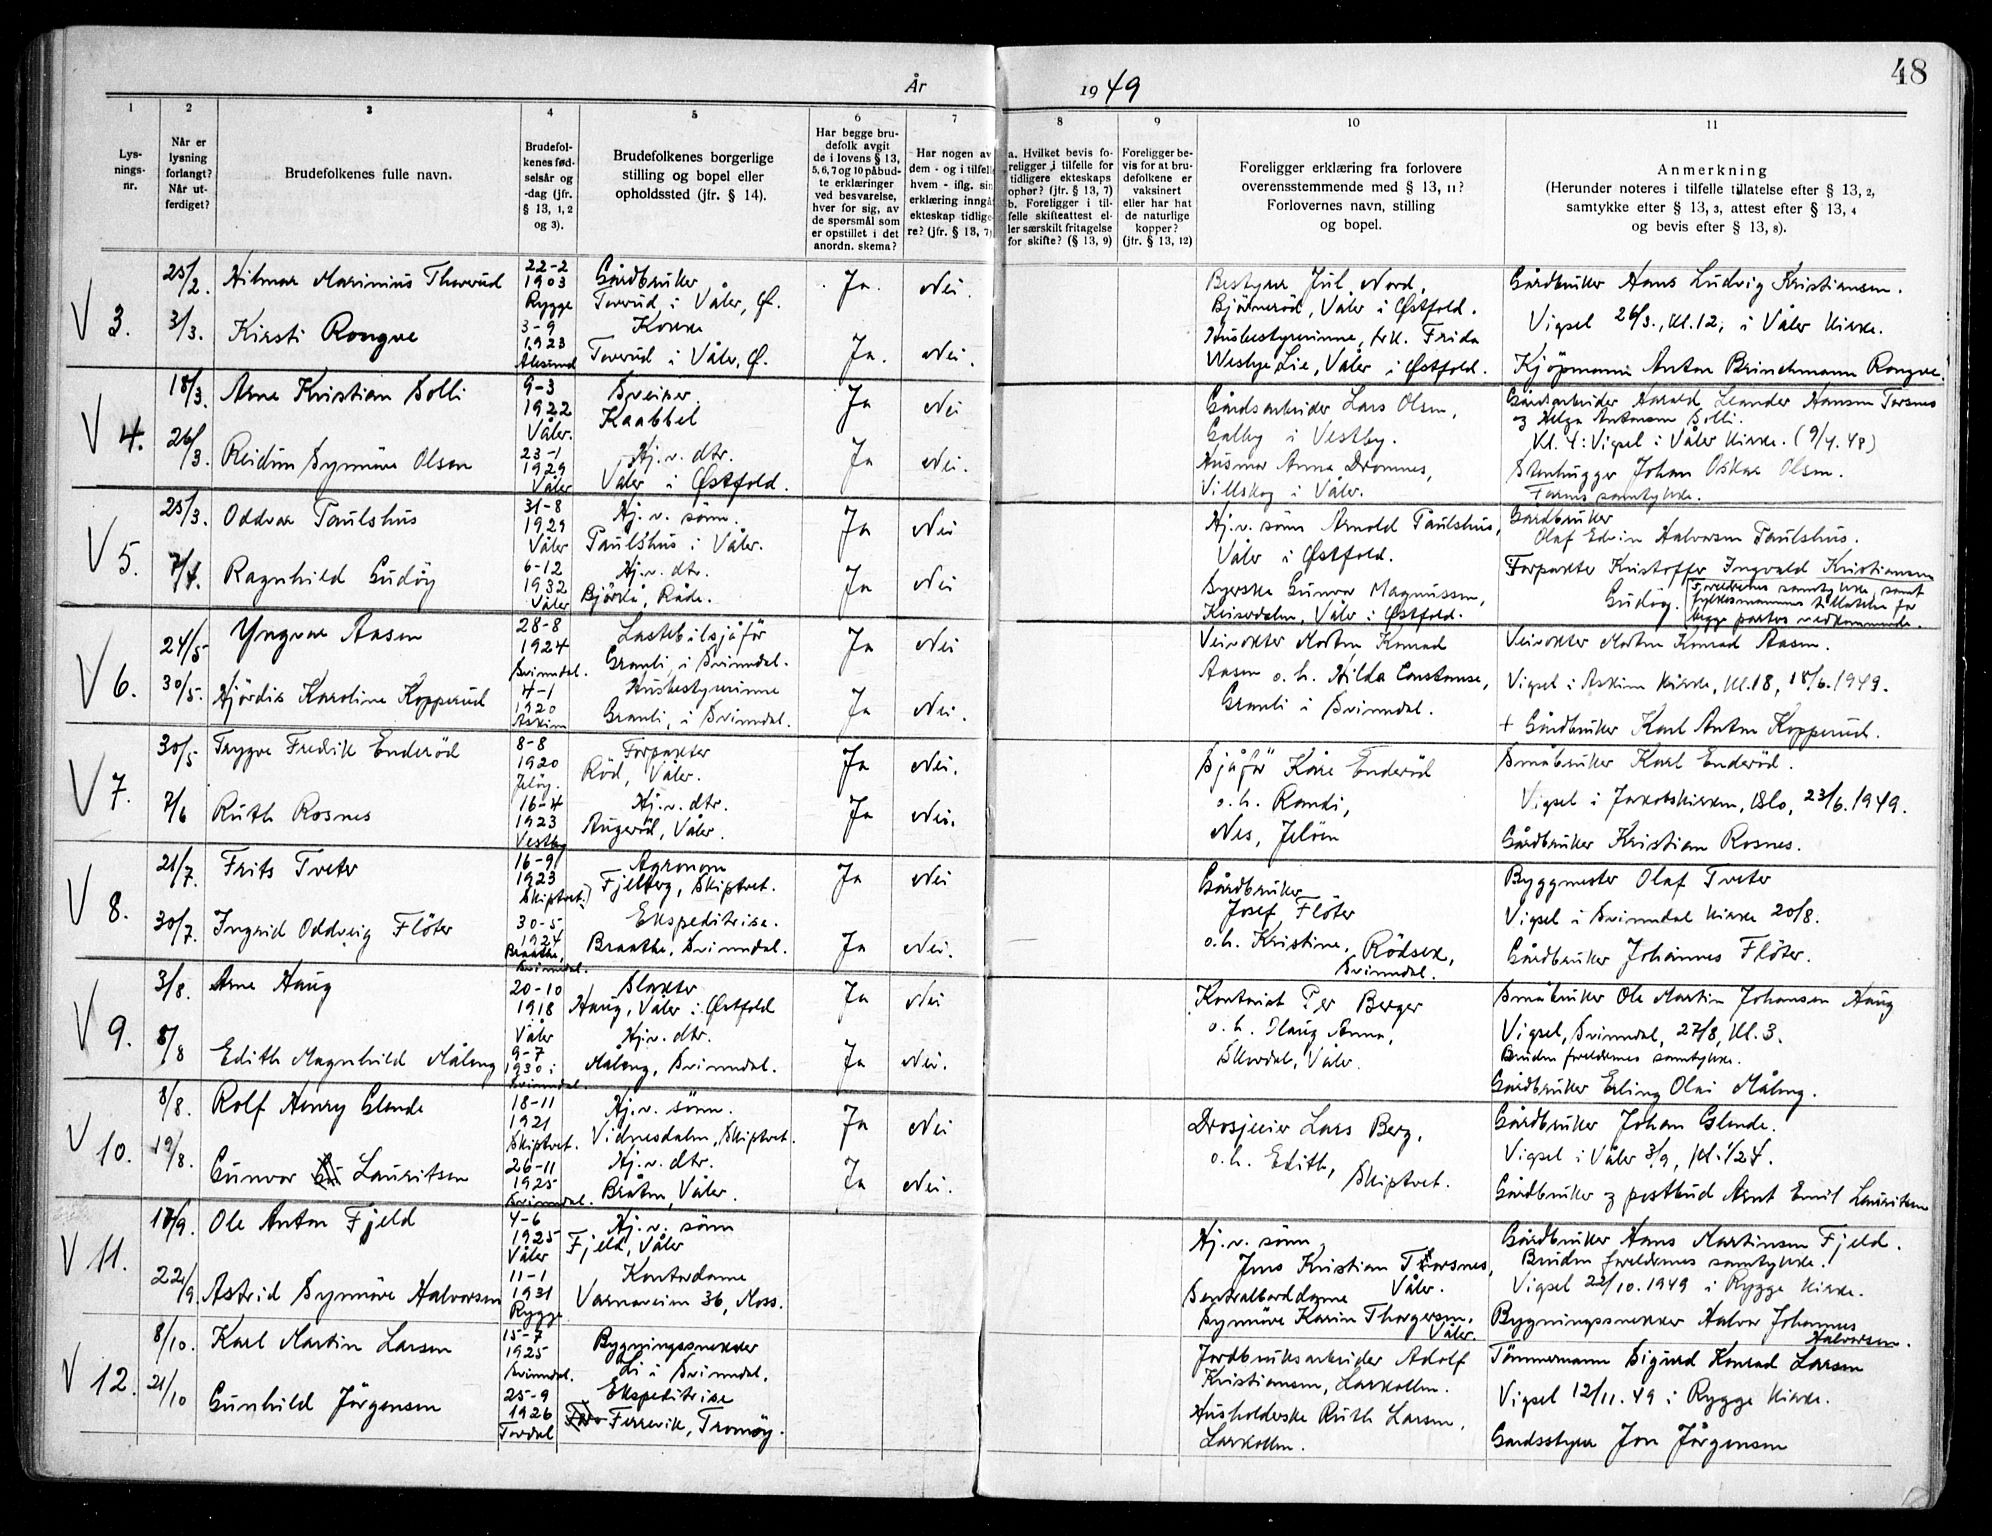 48
År 1949
1
Lys-
nings-
nr.
2
Når er
lysning
forlangt?
Når ut-
ferdiget?
3
Brudefolkenes fulle navn.
4
Brudefol-
kenes fød-
selsår og
-dag (jfr.
§ 13, 1, 2
og 3).
5
Brudefolkenes borgerlige
stilling og bopel eller
opholdssted (jfr. § 14).
6
Har begge bru-
defolk avgit
de i lovens § 13,
5, 6, 7 og 10 påbud-
te erklæringer
ved besvarelse,
hver for sig, av
de spørsmål som
er opstillet i det
anordn. skema?
7
Har nogen av
dem - og i tilfelle
hvem - iflg. sin
erklæring inngå
ekteskap tidlige-
re? (jfr. § 13, 7)
8
a. Hvilket bevis fo-
religger i tilfelle for
tidligere ekteskaps
ophør? (jfr. § 13, 7)
b. Foreligger i til-
felle skifteattest el-
ler særskilt fritagelse
for skifte? (§ 13, 9)
9
Foreligger be-
vis for at bru-
defolkene er
vaksinert
eller har hat
de naturlige
kopper?
(jfr. § 13, 12)
10
Foreligger erklæring fra forlovere
overensstemmende med § 13, 11?
Forlovernes navn, stilling
og bopel.
11
Anmerkning
(Herunder noteres i tilfelle tillatelse efter § 13, 2,
samtykke efter § 13, 3, attest efter § 13, 4
og bevis efter § 13, 8).
V 3.
25/2.
3/3.
Hilmar Marinius Thorerud
Kirsti Rongve
22-2
1903
Rygge
3-9
1923
Ålesund
Gårdbruker
Torerud i Våler, Ø.
Kokke
Torerud i Våler, Ø.
Ja. Nei.
Ja. Nei.
Bestyrer Jul. Nord,
Bjørnerød, Våler i Østfold.
Husbestyrerinne, frk. Frida
Westye Lie, Våler i Østfold.
Gårdbruker Hans Ludvig Kristiansen.
Vigsel 26/3., kl. 12, i Våler kirke.
Kjøpmann Anton Brinchmann Rongve.
V 4.
18/3.
26/3.
Arne Kristian Solli
Reidun Synnøve Olsen
9-3
1922
Våler.
23-1
1929
Våler
Sveiser
Kaabbel
Hj.v. dtr.
Våler i Østfold.
Ja Nei
Ja Nei.
Gårdsarbeider Lars Olsen,
Galby i Vestby.
Husmor Anna Dromnes,
Villskog i Våler.
Gårdsarbeider Harald Leander Hansen Torsnes
og Helga Antonsen Solli.
Kl. 4: Vigsel i Våler kirke. (9/4. 48)
Stenhugger Johan Oskar Olsen.
Farens samtykke.
V 5.
25/3.
7/4.
Oddvar Taulshus
Ragnhild Gudøy
31-8
1929
Våler
6-12
1932
Våler
Hj.v. sønn.
Taulshus i Våler.
Hj.v. dtr.
Bjørkå, Råde.
Ja Nei
Ja Nei
Hj.v. sønn Arnold Taulshus,
Våler i Østfold.
Syerske Gunvor Magnussen,
Keiserdalen, Våler i Østfold.
Gårdbruker
Olaf Edvin Halvorsen Taulshus.
Forpakter Kristoffer Ingvald Kristiansen
Gudøy. Foreldrenes samtykke, samt
fylkesmannens tillatelse for
begge parters vedkommende.
V 6.
24/5
30/5.
Yngvar Aasen
Hjørdis Karoline Kopperud
28-8
1924
Svinndal.
4-1
1920
Askim
Lastebilsjåfør
Granli, i Svinndal.
Husbestyrerinne
Granli, i Svinndal.
Ja Nei
Ja Nei.
Veivokter Morten Konrad
Aasen o.h. Hilda Constanse,
Granli i Svinndal.
Veivokter Morten Konrad Aasen.
Vigsel i Askim kirke, kl. 18, 18/6. 1949.
+ Gårdbruker Karl Anton Kopperud.
V 7.
30/5
7/6
Trygve Fredrik Enderød
Ruth Rosnes
8-8
1920
Jeløy.
16-4
1923
Vestby
Forpakter
Rød, Våler.
Hj.v. dtr.
Augerød, Våler.
Ja Nei.
Ja Nei.
Sjåfør Kåre Enderød
o.h. Randi,
Nes, Jeløen
Småbruker Karl Enderød.
Vigsel i Jakobskirken, Oslo, 23/6. 1949.
Gårdbruker Kristian Rosnes.
V 8.
21/7.
30/7.
Frits Tveter
Ingrid Oddveig Fløter
16-9
1923
Skiptvet.
30-5
1924
Braathe,
Svinndal.
Agronom
Fjelberg, Skiptvet.
Ekspeditrise.
Braathe, Svinndal.
Ja Nei
Ja Nei.
Gårdbruker
Josef Fløter
o.h. Kristine, Rødsex,
Svinndal.
Byggmester Olaf Tveter
Vigsel i Svinndal kirke 20/8.
Gårdbruker Johannes Fløter.
V 9.
3/8.
8/8
Arne Haug
Edith Magnhild Måleng
20-10
1918
Våler
9-7
1930 i
Svinndal.
Slakter
Haug, Våler i Østfold
Hj.v. dtr.
Måleng, Svinndal.
Ja Nei
Ja Nei.
Kontorist Per Berger
o.h. Olaug Anna,
Skordal, Våler.
Småbruker Ole Martin Johansen Haug
Vigsel, Svinndal, 27/8, kl. 3.
Brudens foreldrenes samtykke.
Gårdbruker Erling Olai Måleng.
V 10.
8/8.
19/8.
Rolf Henry Glende
Gunvor Lauritsen
18-11
1921
Skiptvet.
26-11
1925
Svinndal.
Hj.v. sønn.
Vidnesdalen, Skiptvet.
Hj.v. dtr.
Bråten, Våler.
Ja Nei
Ja Nei.
Drosjeeier Lars Berg,
o.h. Edith,
Skiptvet.
Gårdbruker Johan Glende.
Vigsel i Våler 3/9, kl. 1/2 4.
Gårdbruker og postbud Arnt Emil Lauritsen
V 11.
17/9.
22/9
Ole Anton Fjeld
Astrid Synnøve Halvorsen
4-6
1925
Våler
11-1
1931
Rygge
Hj.v. sønn
Fjeld, Våler
Kontordame
Varnaveien 36, Moss.
Hj.v. sønn
Jens Kristian Thorsnes,
Våler.
Sentralborddame
Synnøve Karin Thorgersen,
Våler.
Gårdbruker Hans Martinsen Fjeld.
Brudens foreldrenes samtykke.
Vigsel 22/10. 1949 i Rygge kirke.
Bygningssnekker Halvor Johannes
Halvorsen.
V 12.
8/10.
21/10
Karl Martin Larsen
Gunhild Jørgensen
15-7
1925
Svinndal.
25-9
1926
Tordal
Bygningssnekker
Li i Svinndal.
Ekspeditrise
Ferrevik, Tromøy.
Jordbruksarbeider Adolf
Kristiansen, Larkollen.
Husholderske Ruth Larsen,
Larkollen.
Tømmermann Sigurd Konrad Larsen
Vigsel 12/11. 49 i Rygge kirke.
Gårdsstyrer Jon Jørgensen